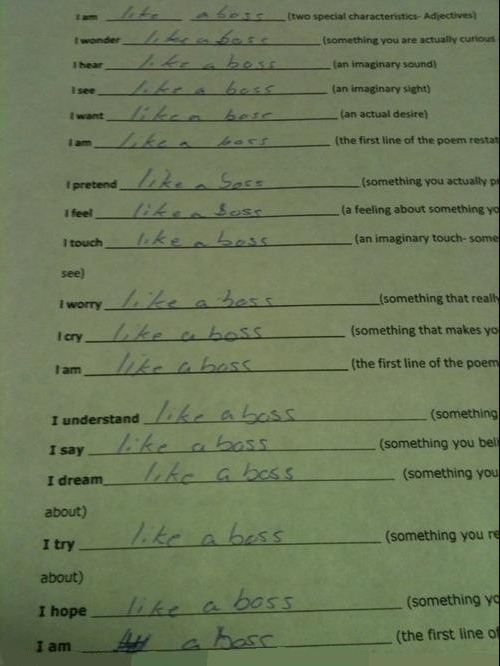 I am like a boss (two special characteristics- Adjectives)
I wonder like a boss (something you are actually curious
I hear like a boss (an imaginary sound)
I see like a boss (an imaginary sight)
I want like a boss (an actual desire)
I am like a boss (the first line of the poem restat
I pretend like a boss (something you actually pr
I feel like a Boss (a feeling about something yo
I touch like a boss (an imaginary touch- some
see)
I worry like a boss (something that reall
I cry like a boss (something that makes yo
I am like a boss (the first line of the poem
I understand like a boss (something
I say like a boss (something you beli
I dream like a boss (something you
about)
I try like a boss (something you re
about)
I hope like a boss (something yo
I am a boss (the first line of